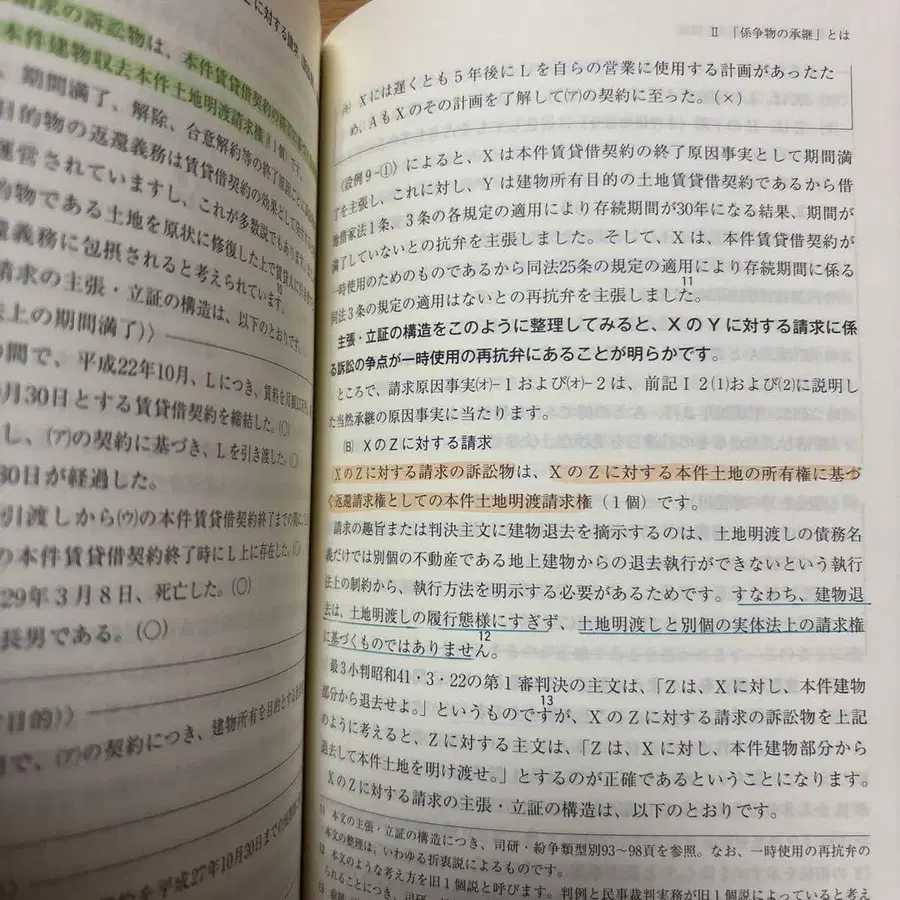 請求の訴訟物は、本件賃貸借契約の終了
本件建物収去本件土地明渡請求権（1個）です。
期間満了、解除、合意解約等の終了原因ごとに
目的物の返還義務は賃貸借契約の効果として発生する
運営されていますし、これが多数説でもあります。
物である土地を原状に修復した上で賃貸人に引き
義務に包摂されると考えられています。10
請求の主張・立証の構造は、以下のとおりです。
上の期間満了））
の間で、平成22年10月、Lにつき、賃料を月額
月30日とする賃貸借契約を締結した。（○）
し、(ア)の契約に基づき、Lを引き渡した。（○）
30日が経過した。
引渡しから(ウ)の本件賃貸借契約終了までの間に、
の本件賃貸借契約終了時にL上に存在した。（○）
29年3月8日、死亡した。（○）
長男である。（○）
目的））
間で、(ア)の契約につき、建物所有を目的とする
契約を平成27年10月30日までの
Ⅱ 「係争物の承継」とは
(ケ) Xには遅くとも5年後にLを自らの営業に使用する計画があったた
め、AもXのその計画を了解して(ア)の契約に至った。（×）
〈設例9-①〉によると、Xは本件賃貸借契約の終了原因事実として期間満
了を主張し、これに対し、Yは建物所有目的の土地賃貸借契約であるから借
地借家法1条、3条の各規定の適用により存続期間が30年になる結果、期間が
満了していないとの抗弁を主張しました。そして、Xは、本件賃貸借契約が
一時使用のためのものであるから同法25条の規定の適用により存続期間に係る
同法3条の規定の適用はないとの再抗弁を主張しました。11
主張・立証の構造をこのように整理してみると、XのYに対する請求に係
る訴訟の争点が一時使用の再抗弁にあることが明らかです。
ところで、請求原因事実(オ)-1および(オ)-2は、前記Ⅰ2(1)および(2)に説明し
た当然承継の原因事実に当たります。
(B) XのZに対する請求
XのZに対する請求の訴訟物は、XのZに対する本件土地の所有権に基づ
く返還請求権としての本件土地明渡請求権（1個）です。
請求の趣旨または判決主文に建物退去を摘示するのは、土地明渡しの債務名
義だけでは別個の不動産である地上建物からの退去執行ができないという執行
法上の制約から、執行方法を明示する必要があるためです。すなわち、建物退
去は、土地明渡しの履行態様にすぎず、土地明渡しと別個の実体法上の請求権
に基づくものではありません。12
最3小判昭和41・3・22の第1審判決の主文は、「Zは、Xに対し、本件建物
部分から退去せよ。」というものですが、13XのZに対する請求の訴訟物を上記
のように考えると、Zに対する主文は、「Zは、Xに対し、本件建物部分から
退去して本件土地を明け渡せ。」とするのが正確であるということになります。
XのZに対する請求の主張・立証の構造は、以下のとおりです。
11 本文の主張・立証の構造につき、司研・紛争類型別93〜98頁を参照。なお、一時使用の再抗弁の
本文の整理は、いわゆる折衷説によるものです。
12 本文のような考え方を旧1個説と呼びます。判例と民事裁判実務が旧1個説によっていると考え
られることにつき、司研
13